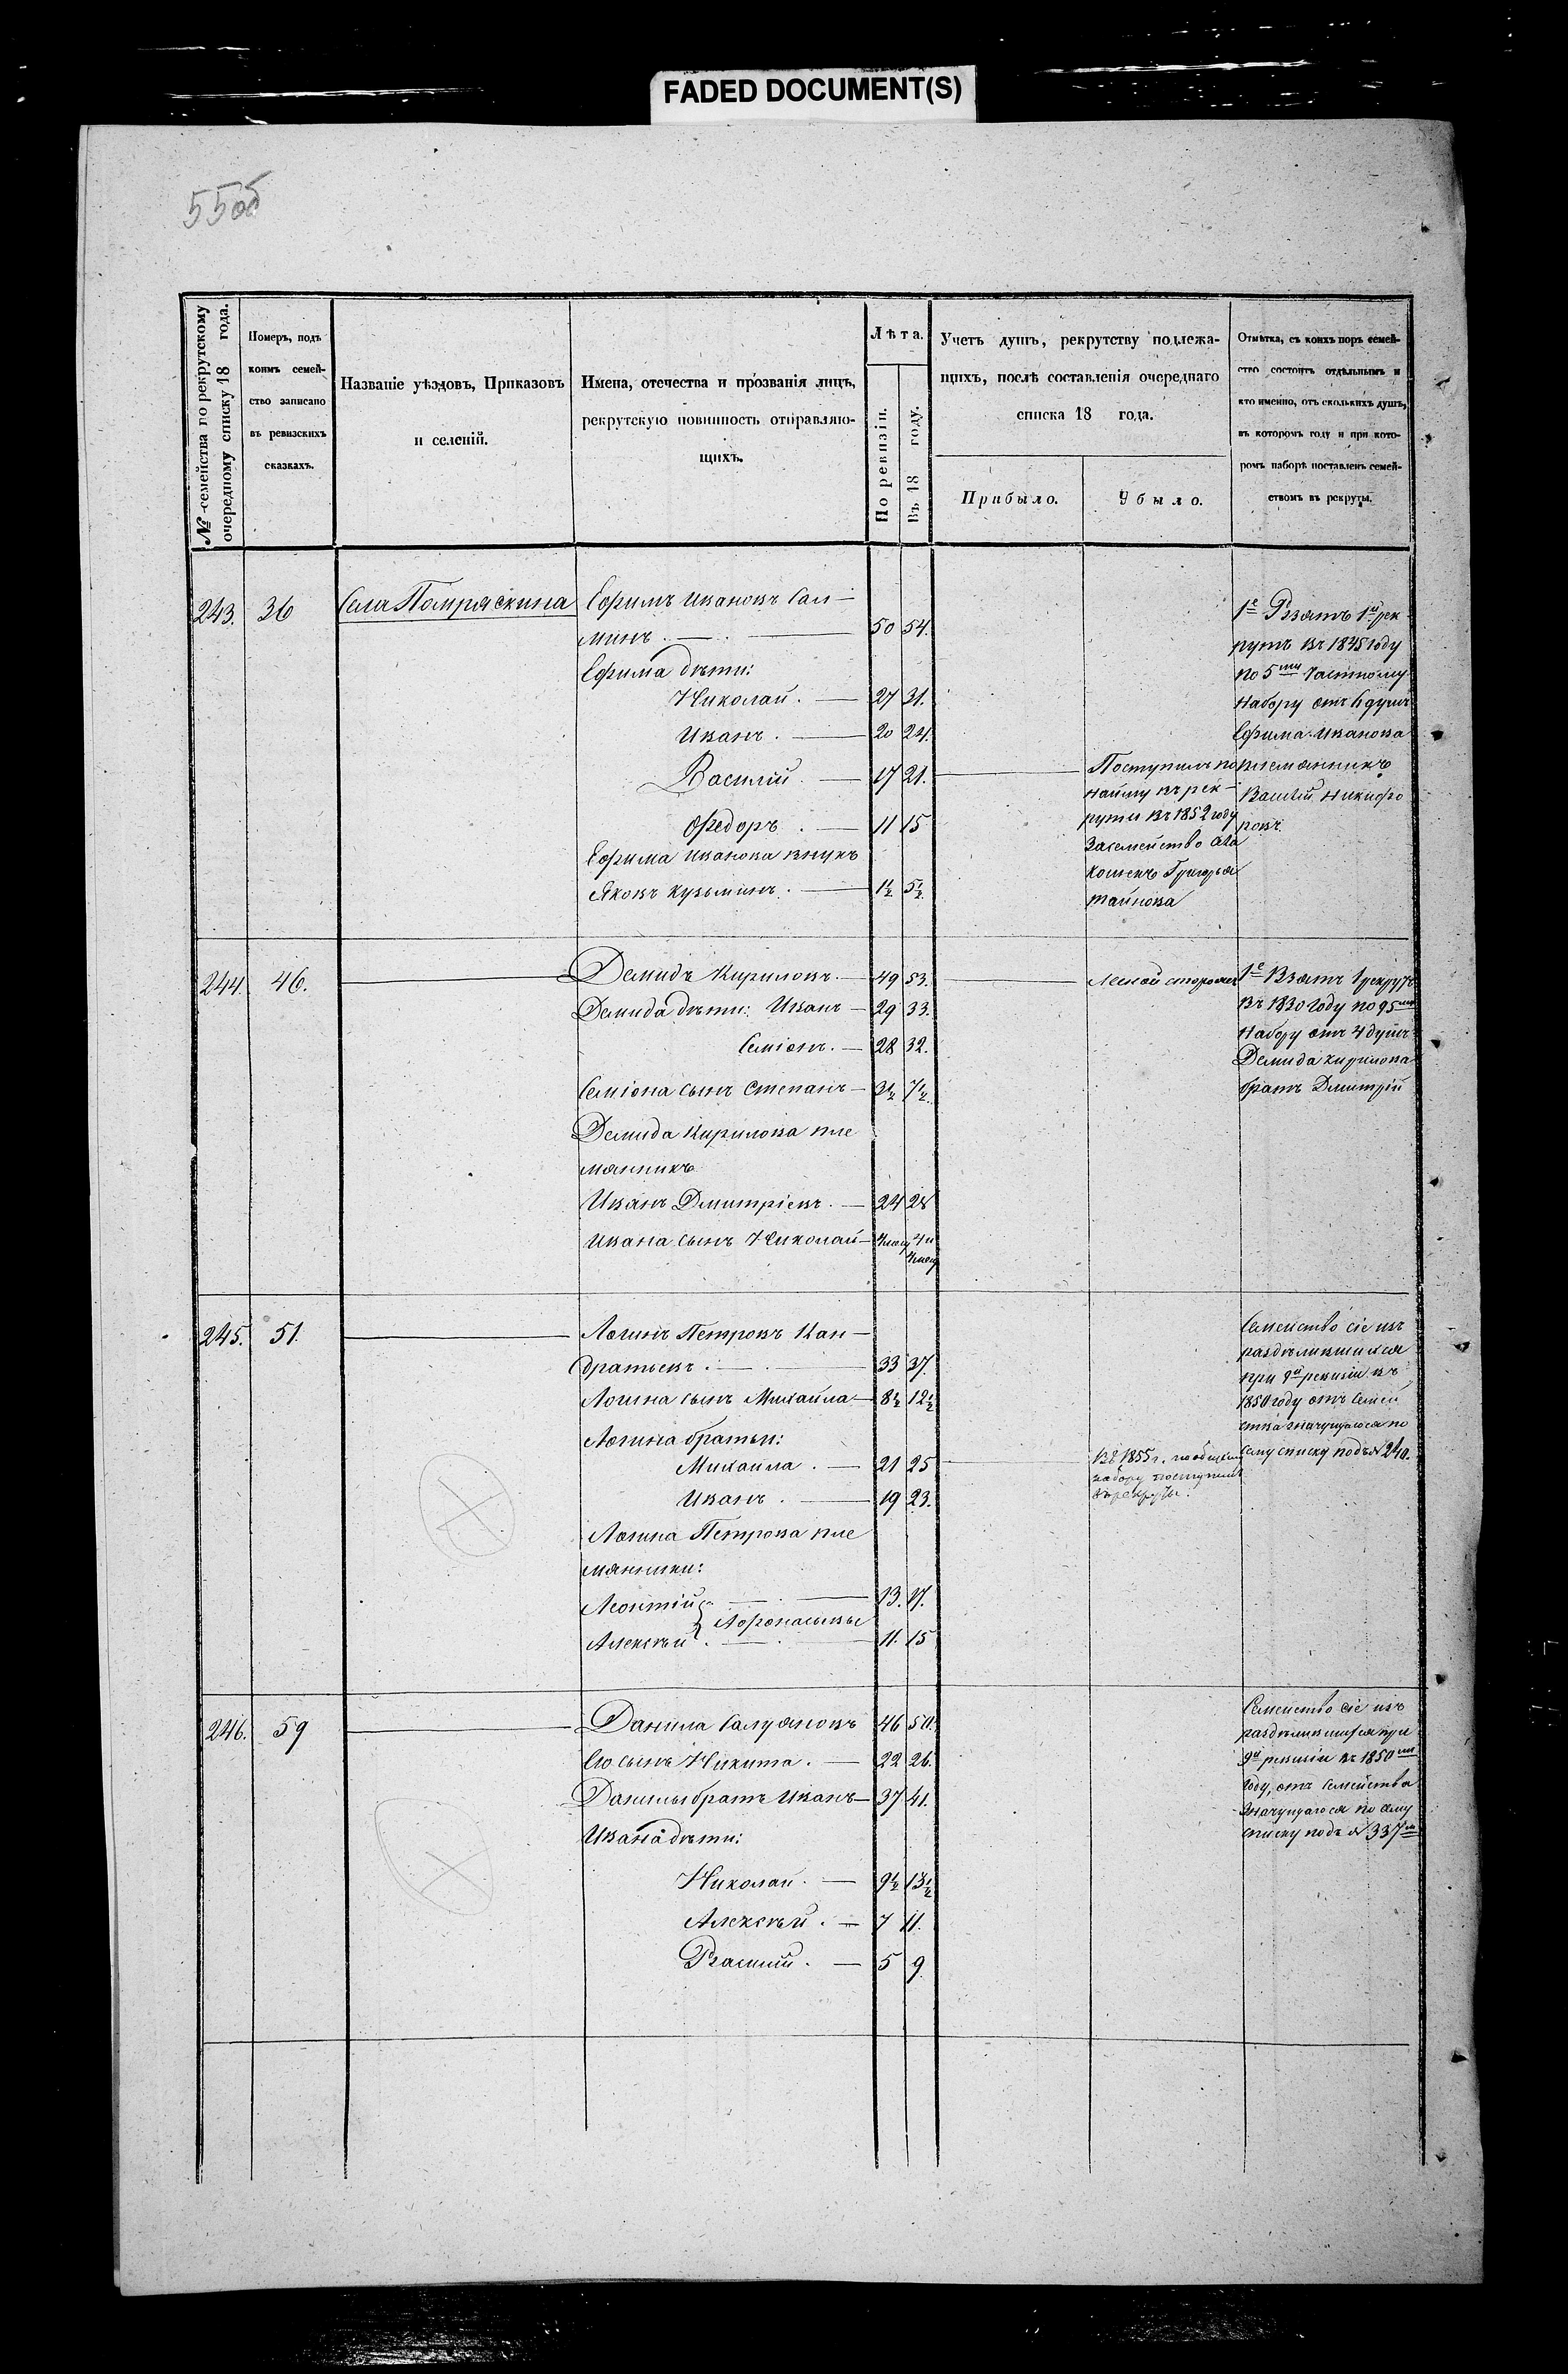 FADED DOCUMENT(S)
55об
№ семейства по рекрутскому
очередному списку 18 года.
Номеръ, подъ
коимъ семей-
ство записано
въ ревизскихъ
сказкахъ.
Названіе уѣздовъ, Приказовъ
и селеній.
Имена, отечества и прозванія лицъ,
рекрутскую повинность отправляю-
щихъ.
Лѣта.
По ревизіи.
Въ 18 году.
Учетъ душъ, рекрутству подлежа-
щихъ, послѣ составленія очереднаго
списка 18 года.
Прибыло.
Убыло.
Отмѣтка, съ коихъ поръ семей-
ство состоитъ отдѣльнымъ и
кто именно, отъ сколькихъ душъ,
въ которомъ году и при кото-
ромъ наборѣ поставленъ семей-
ствомъ въ рекруты.
243. 36 Села Помряскина Ефимъ Ивановъ Сал-
минъ. 50 54.
Ефима дѣти:
Николай. 27 31.
Иванъ. 20 24.
Василій. 17 21.
Федоръ. 11 15
Ефима Иванова внукъ
Яковъ Кузьминъ. 1½ 5½
Поступилъ по
найму въ рек-
руты въ 1852 году
за семейство
Григорья
1е Взятъ 1й рек
рутъ въ 1845 году
по 5му частному
набору отъ 6 душъ
Ефима Иванова
племянникъ
Василій Никифо
ровъ
244. 46. Демидъ Кириловъ. 49 53.
Демида дѣти: Иванъ 29 33.
Семіонъ. 28 32.
Семіона сынъ Степанъ 3½ 7½
Демида Кирилова пле
мянникъ
Иванъ Дмитріевъ. 24 28
Ивана сынъ Николай 4 мец 4 и
4 мец
Лесной сторожъ
1е Взятъ 1 рекрутъ
въ 1830 году по 95му
набору отъ 4 душъ
Демида Кирилова
братъ Дмитрій
245. 51. Логинъ Петровъ Кан-
дратьевъ. 33 37.
Логина сынъ Михайла 8½ 12½
Логина братьи:
Михайла. 21 25
Иванъ. 19 23.
Логина Петрова пле
мянники:
Леонтій 13. 17.
Афонасьевы
Алексѣй 11. 15
Въ 1855 г. по общему
набору поступилъ
въ рекруты.
Семейство сіе изъ
раздѣлившихся
при 9й ревизіи въ
1850 году отъ семей
ства значущагося по
сему списку подъ № 240.
246. 59 Данила Салуяновъ 46 50.
Его сынъ Никита. 22 26.
Данилы братъ Иванъ 37 41.
Ивана дѣти:
Николай. 9½ 13½
Алексѣй. 7 11.
Василій. 5 9
Семейство сіе изъ
раздѣлившихся при
9й ревизіи въ 1850мъ
году, отъ семейства
значущагося по сему
списку подъ № 337м